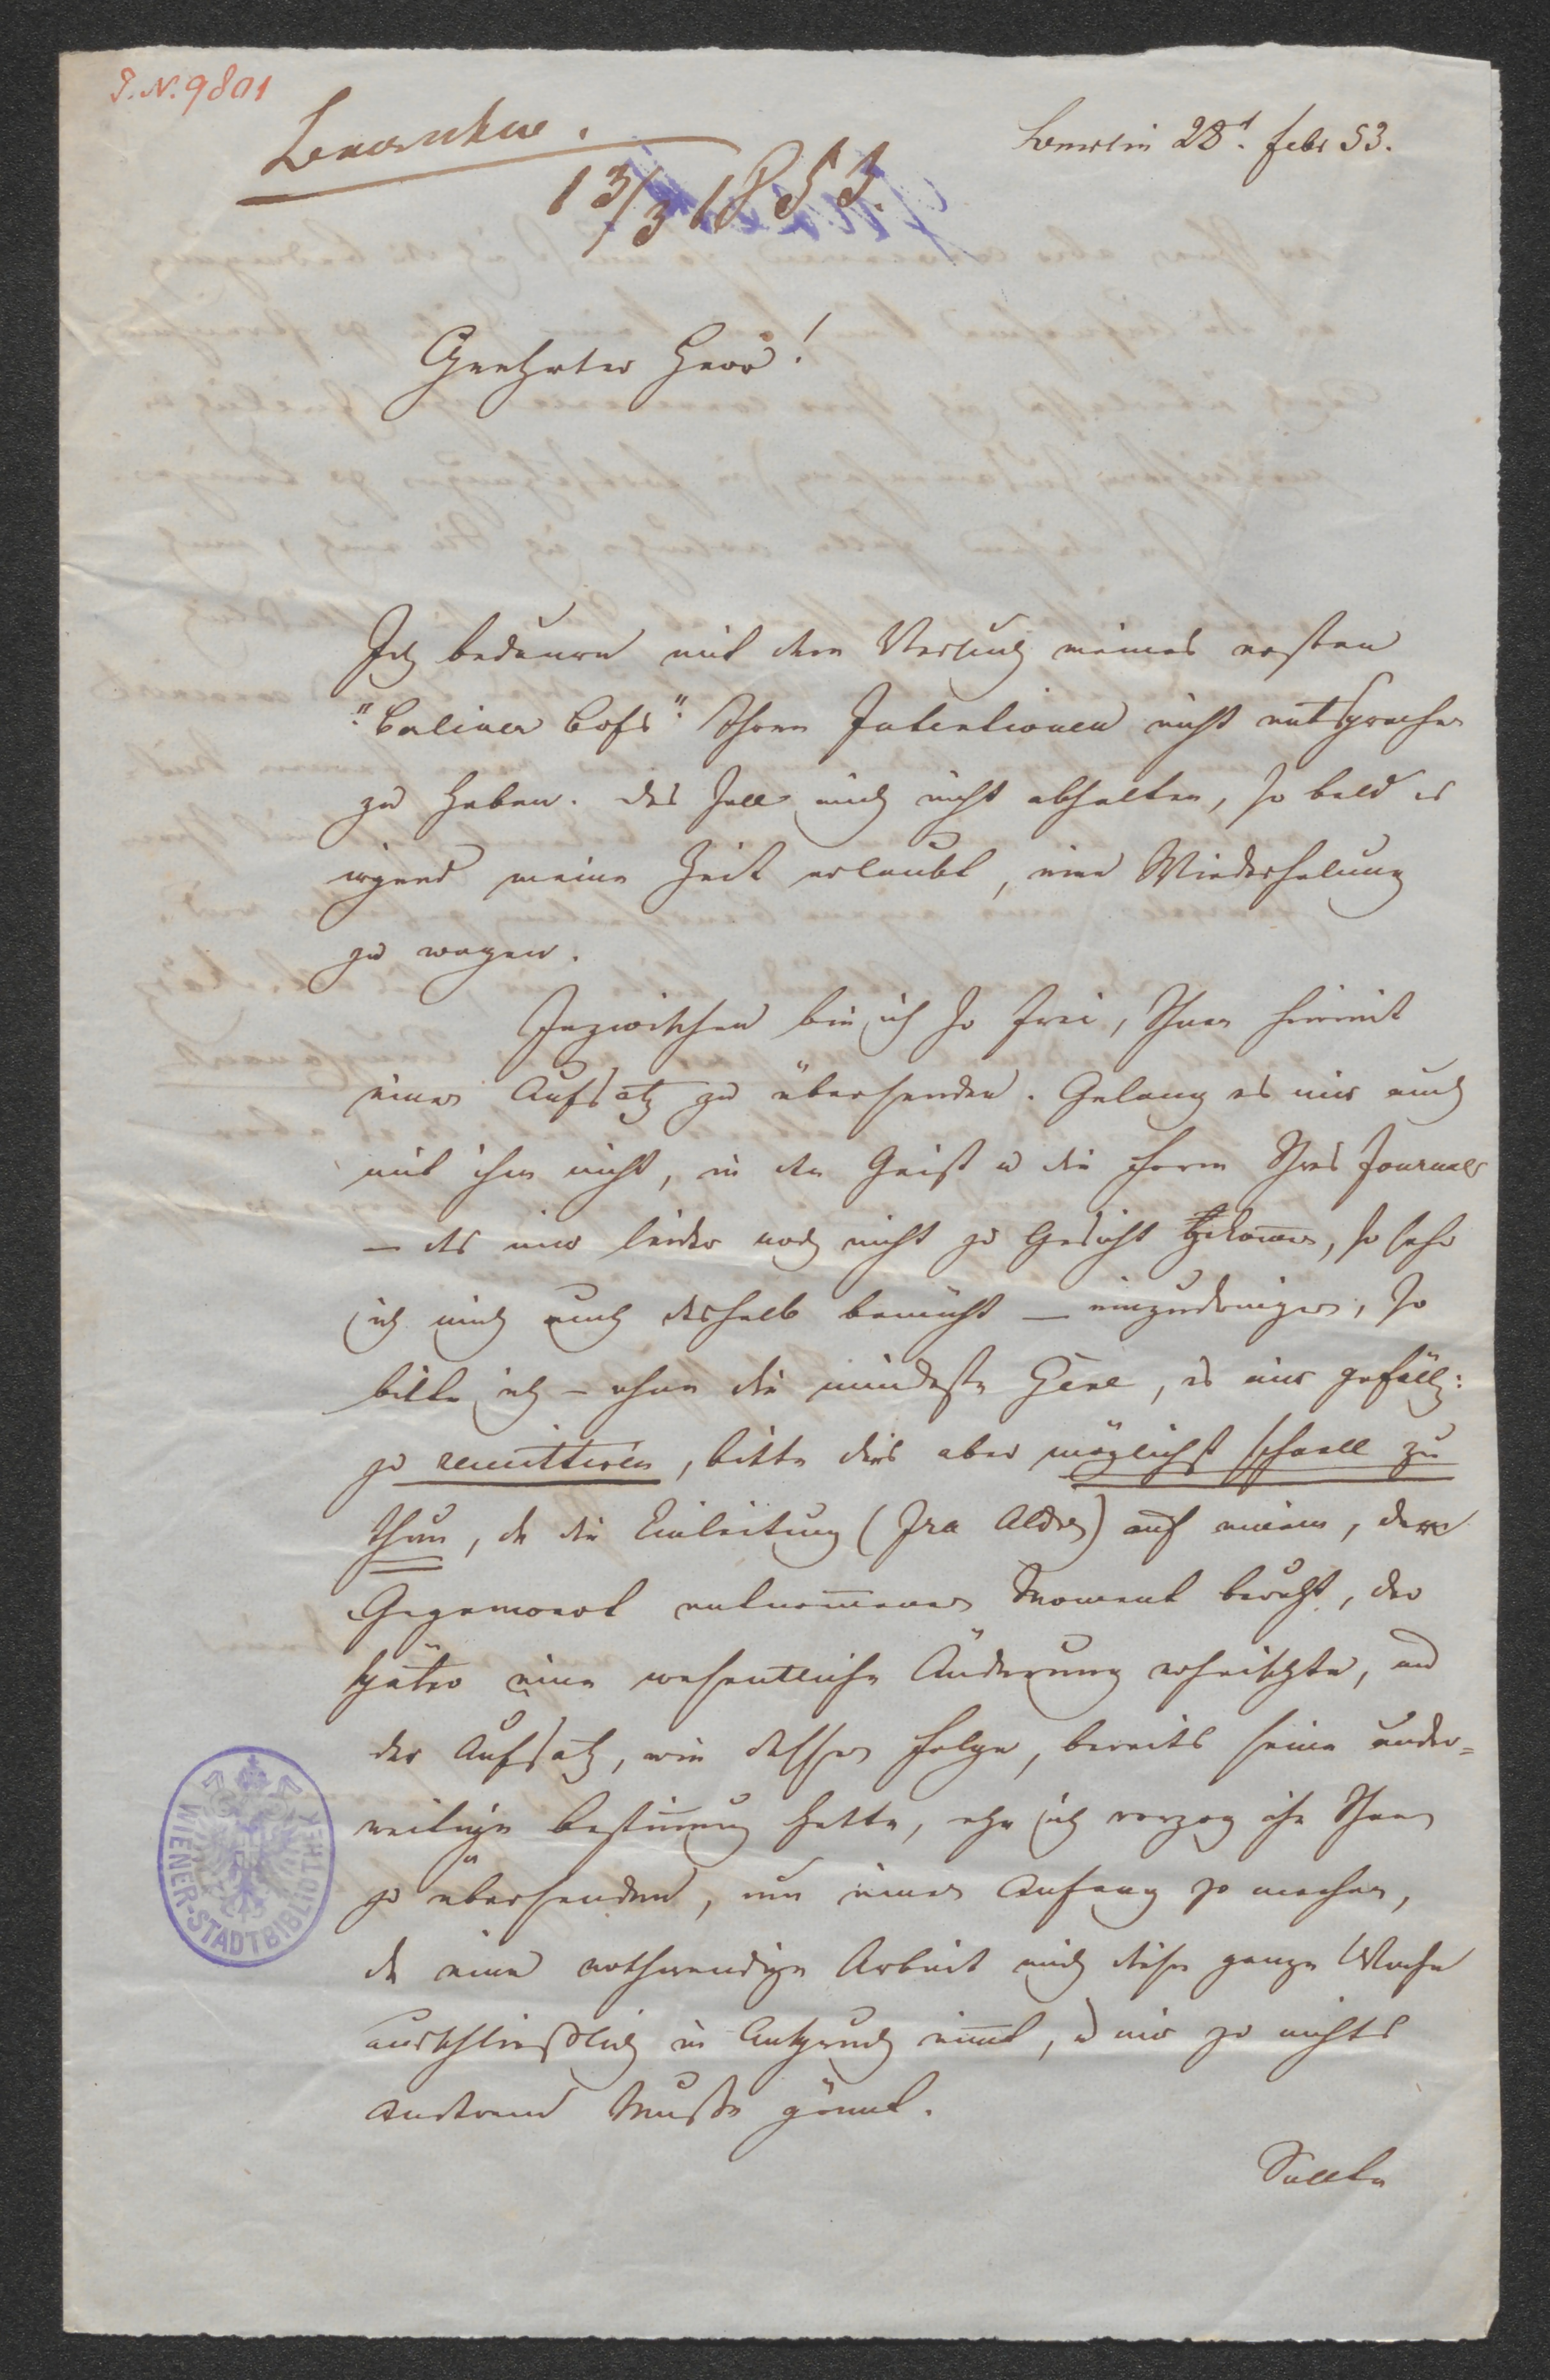 I.N. 9801
13/3 1853.
28t. Febr 53.
Geehrter Herr!
Ich bedaure mit dem Versuch meines ersten
"Berliner Cofs" Ihren Intentionen nicht entsprochen
zu haben. Das soll mich nicht abhalten, so bald es
irgend meine Zeit erlaubt, eine Wiederholung
zu wagen.
Inzwischen bin ich so frei, Ihnen hiemit
einen Aufsatz zu übersenden. Gelang es mir auch
mit ihm nicht, in den Geist u die Form Ihres Journals
– das mir leider noch nicht zu Gesicht gekom̄en, so sehr
ich mich auch deshalb bemüht – einzudringen, so
bitte ich – ohne die mindeste Gene, es mir gefällg:
zu remittiren, bitte dies aber möglichst schnell zu
thun, da die Einleitung (Ira Aldr) auf einem, der
Gegenwart entnom̄enen Moment beruht, der
später eine wesentliche Änderung erheischte, und
der Aufsatz, wie dessen Folge, bereits seine ander=
weitige Bestim̄ung hatte, ehe ich vorzog ihn Ihnen
zu übersenden, um einen Anfang zu machen,
da eine nothwendige Arbeit mich diese ganze Woche
ausschließlich in Anspruch nim̄t, u mir zu nichts
anderem Muße gönnt.
Sollte
WIENER-STADTBIBLIOTHEK